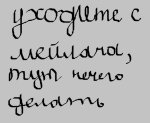 уходите с
мейлача,
тут нечего
делать